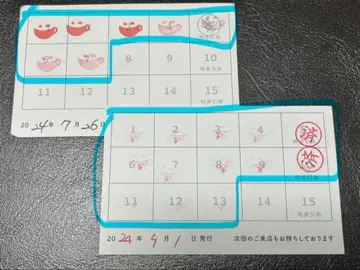 8 9 10
特典引換
11 12 13 14 15
特典引換
2024年7月26日
1 2 3 4
済
特典引換
6 7 8 9
特典引換
11 12 13 14 15
特典引換
2024年9月1日発行 次回のご来店もお待ちしております